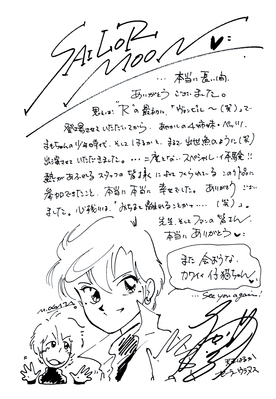 SAILOR
MOON
… 本当に長い間、
ありがとうございました。
"R"の最初に、
登場させていただいてから、あやかしの4姉妹・ペッツ、
まもちゃんの少年時代、そしてはるかと、まるで出世魚のように(笑)
出演させていただきました。… 二度とない、スペシャル・イイ体験!!
熱があふれるスタッフの皆様に
参加できたこと、本当に本当に幸せでした。ありがとうござい
ました。心残りは、"みちると離れることかナ… (笑)。"
先生、そしてファンの皆さん、
本当にありがとう
また会おうな、
カワイイ仔猫ちゃん
… See you again!
M.OGATA
天王はるか
セーラーウラヌス